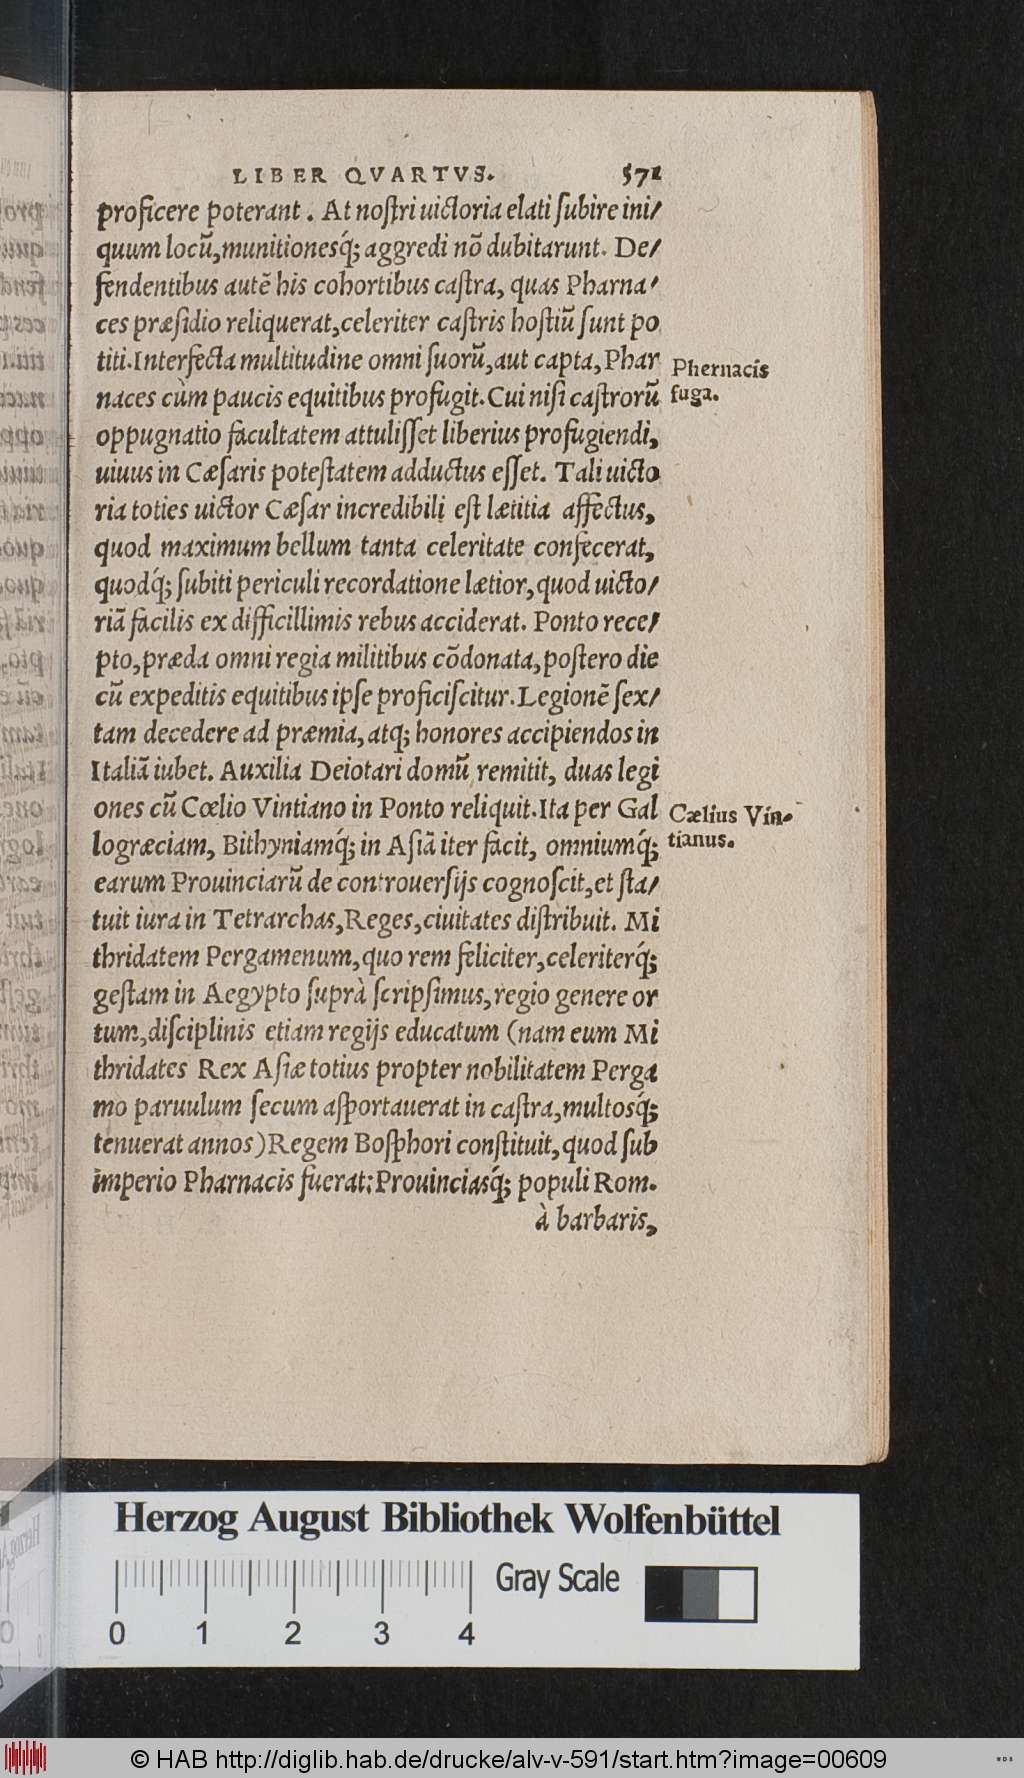 LIBER QVARTVS. 571
proficere poterant. At nostri uictoria elati subire ini/
quum locũ, munitionesq́; aggredi nõ dubitarunt. De/
fendentibus autẽ his cohortibus castra, quas Pharna/
ces præsidio reliquerat, celeriter castris hostiũ sunt po
titi. Interfecta multitudine omni suorũ, aut capta, Phar
naces cùm paucis equitibus profugit. Cui nisi castrorũ
oppugnatio facultatem attulisset liberius profugiendi,
uiuus in Cæsaris potestatem adductus esset. Tali uicto
ria toties uictor Cæsar incredibili est lætitia affectus,
quod maximum bellum tanta celeritate confecerat,
quodq́; subiti periculi recordatione lætior, quod uicto/
riã facilis ex difficillimis rebus acciderat. Ponto rece/
pto, præda omni regia militibus cõdonata, postero die
cũ expeditis equitibus ipse proficiscitur. Legionẽ sex/
tam decedere ad præmia, atq; honores accipiendos in
Italiã iubet. Auxilia Deiotari domũ remitit, duas legi
ones cũ Cœlio Vintiano in Ponto reliquit. Ita per Gal
logræciam, Bithyniamq́; in Asiã iter facit, omniumq́;
earum Prouinciarũ de controuersijs cognoscit, et sta/
tuit iura in Tetrarchas, Reges, ciuitates distribuit. Mi
thridatem Pergamenum, quo rem feliciter, celeriterq́;
gestam in Aegypto suprà scripsimus, regio genere or
tum, disciplinis etiam regijs educatum (nam eum Mi
thridates Rex Asiæ totius propter nobilitatem Perga
mo paruulum secum asportauerat in castra, multosq́;
tenuerat annos) Regem Bosphori constituit, quod sub
imperio Pharnacis fuerat: Prouinciasq́; populi Rom.
à barbaris,
Phernacis
fuga.
Cælius Vin-
tianus.
Herzog August Bibliothek Wolfenbüttel
Gray Scale
0 1 2 3 4
© HAB http://diglib.hab.de/drucke/alv-v-591/start.htm?image=00609